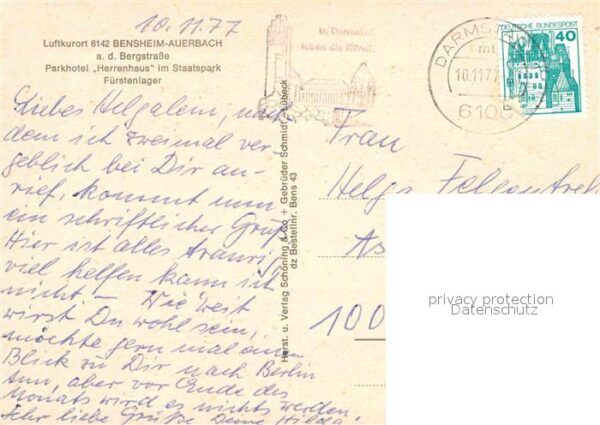 10.11.77
Luftkurort 6142 BENSHEIM-AUERBACH
a. d. Bergstraße
Parkhotel „Herrenhaus" im Staatspark
Fürstenlager
Liebes Helgalein, nach-
dem ich zweimal ver-
geblich bei Dir an-
rief, kommt nun
ein schriftlicher Gruß.
Hier ist alles traurig,
viel helfen kann ich
nicht. – Wie weit
wirst Du wohl sein,
möchte gern mal einen
Blick zu Dir nach Berlin
tun, aber vor Ende des
Monats wird es nichts werden.
Sehr liebe Grüße Deine Hilda
Horst. u. Verlag Schöning & Co + Gebrüder Schmidt, Lübeck
dz Bestellnr. Bens 43
In Darmstadt
leben die Künste
DARMSTADT
mt
10.11.77
6100
DEUTSCHE BUNDESPOST
40
Frau
Helga
100
privacy protection
Datenschutz